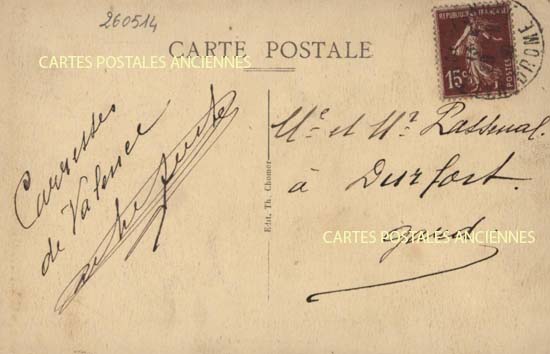 260514
CARTE POSTALE
CARTES POSTALES ANCIENNES
REPUBLIQUE FRANÇAISE
15c
POSTES
DROME
Caresses
de Valence
Edit. Th. Chomer
Me et Mr
à Durfort.
CARTES POSTALES ANCIENNES
gard